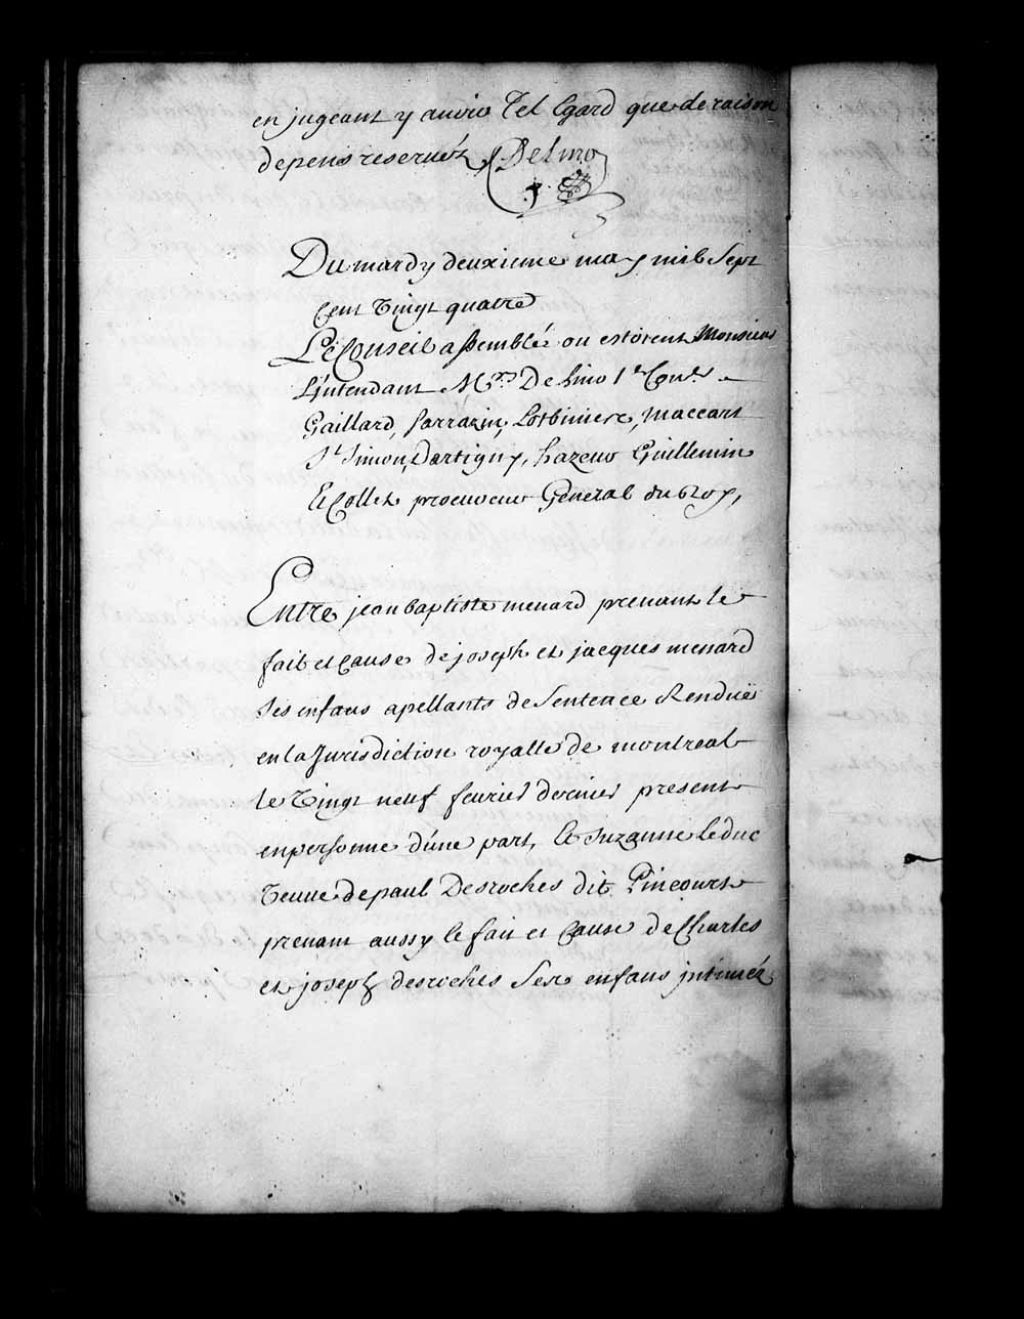 en jugeant y avoir Tel Egard que de raison
depens reservéz Delino
Du mardy deuxieme may mil Sept
Cent Vingt quatre
Le Conseil assemblé ou estoient Monsieur
L'intendant Mrs Delino 1er Conr
Gaillard, Sarrazin, Lotbiniere, Maccart
St Simon, Dartigny, hazeur Guillemin
Et Collet procureur General du Roy,
Entre jean baptiste menard prenant le
fait et Cause de joseph et jacques menard
Ses enfans apellants de Sentence Rendüe
en la Jurisdiction royalle de montreal
le Vingt neuf fevrier dernier present
en personne d'une part, Et Suzanne Leduc
Veuve de paul Desroches dit Pincourt
prenant aussy le fait et Cause de Charles
et joseph desroches Ses enfans intiméz